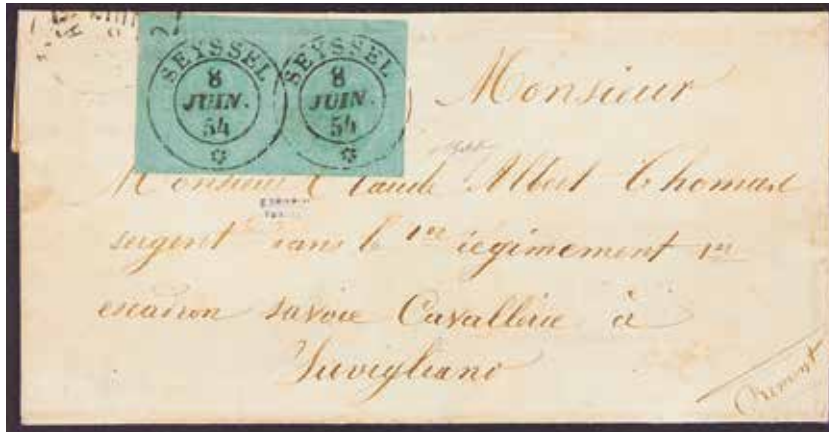 SEYSSEL SEYSSEL
8 8
JUIN. JUIN.
54 54
Monsieur
Monsieur Claude Albert Thomasé
sergent dans le 1er regimement 1er
escadron savoie Cavallerie à
Savigliano